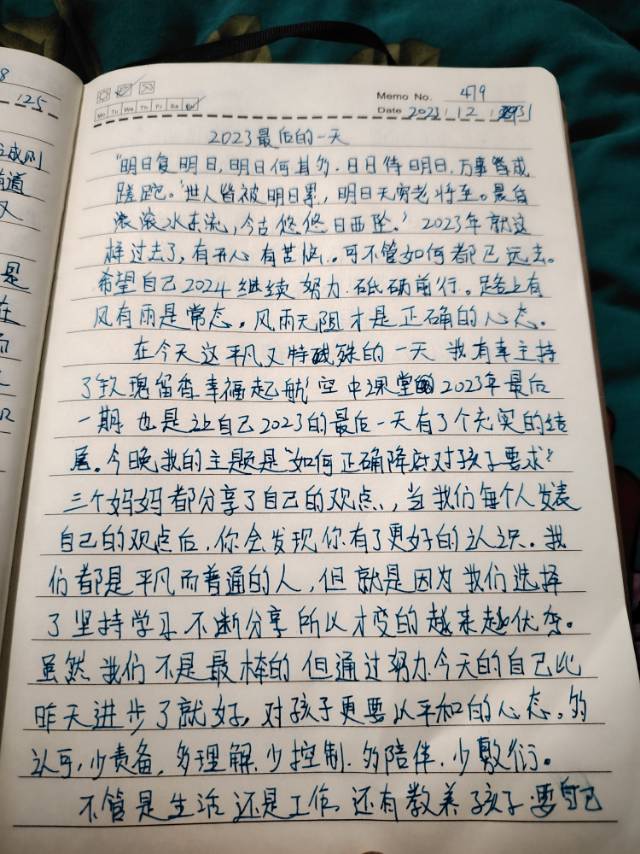 8
125
Memo No. 419
Mo Tu We Th Fr Sa Su
Date 2023.12.31
2023最后的一天
"明日复明日,明日何其多.日日待明日,万事皆成
蹉跎."世人皆被明日累,明日无穷老将至。晨昏
滚滚水东流,今古悠悠日西坠.'2023年就这
样过去了,有开心有苦恼..可不管如何都已远去。
希望自己2024继续努力.砥砺前行。路上有
风有雨是常态。风雨无阻才是正确的心态。
在今天这平凡又特殊的一天 我有幸主持
了玫瑰留香幸福起航空中课堂 2023年最后
一期.也是让自己2023的最后一天有了个充实的结
尾。今晚我的主题是"如何正确降低对孩子要求?
三个妈妈都分享了自己的观点,当我们每个人发表
自己的观点后.你会发现你有了更好的认识。我
们都是平凡而普通的人,但就是因为我们选择
了坚持学习.不断分享所以才变的越来越优秀。
虽然我们不是最棒的但通过努力今天的自己比
昨天进步了就好.对孩子更要以平和的心态。多
认可,少责备,多理解.少控制.多陪伴.少敷衍。
不管是生活还是工作.还有教养孩子.要自己